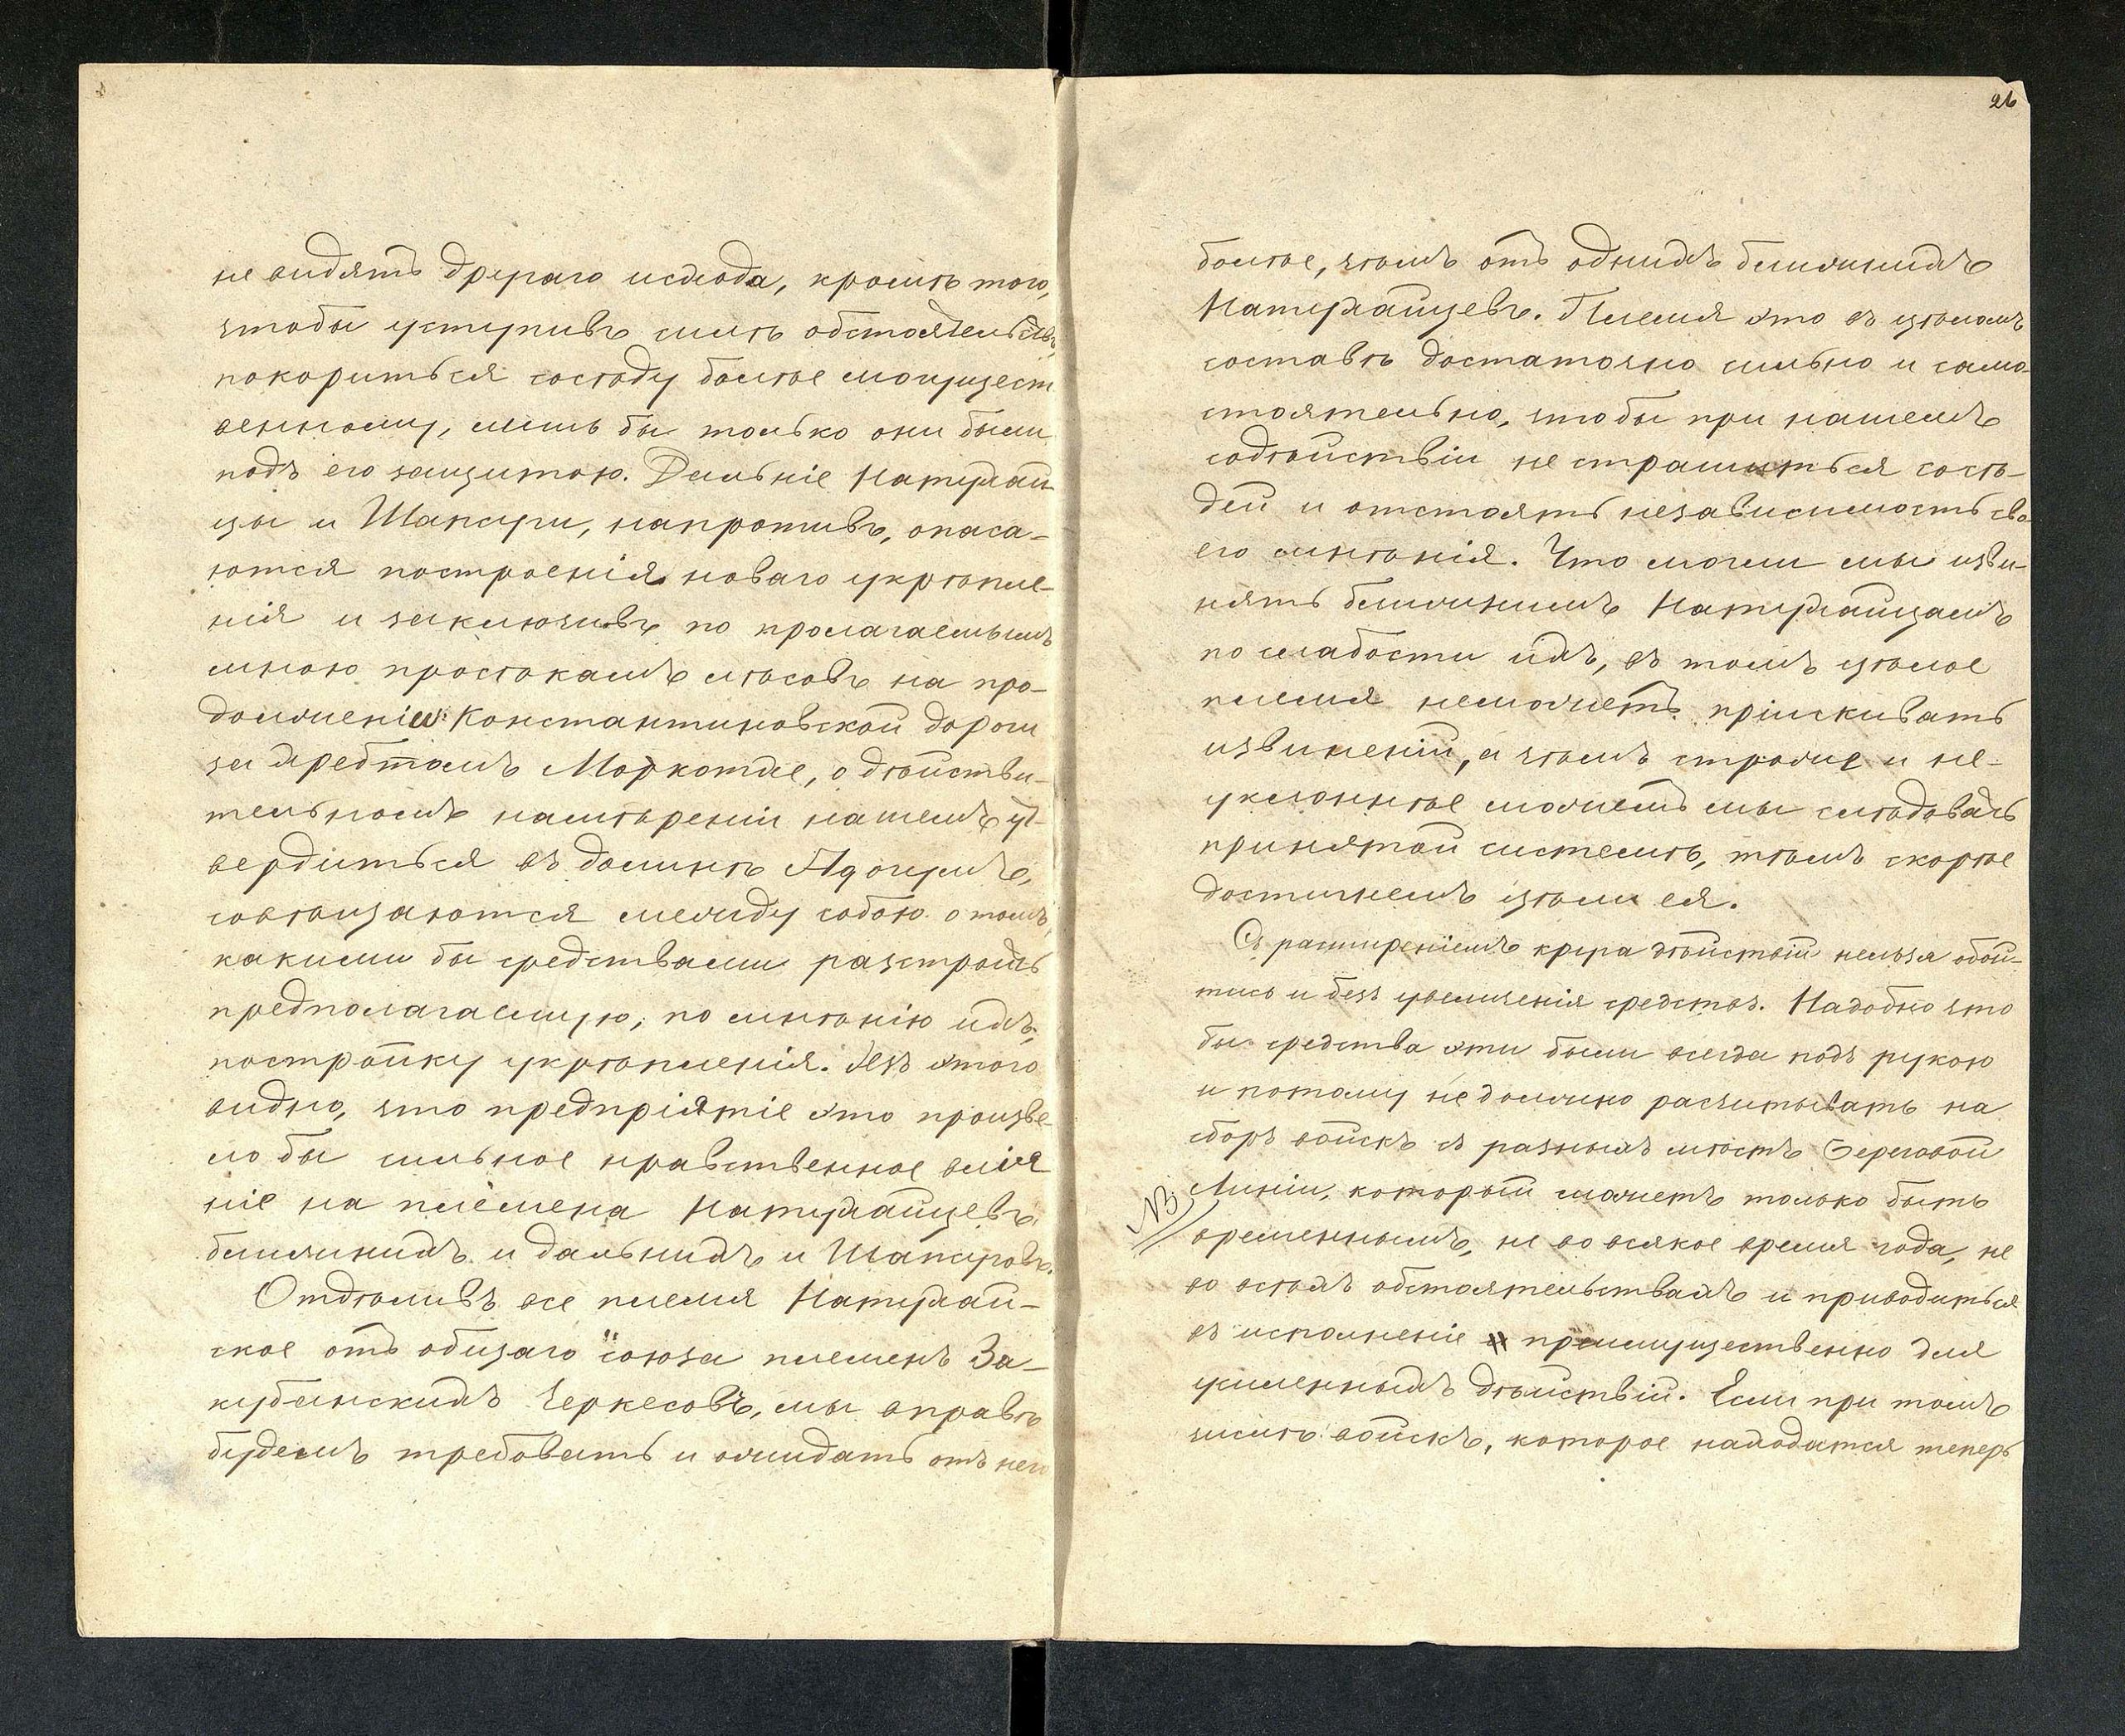 не видятъ другаго исхода, кромѣ того,
чтобы уступивъ силѣ обстоятельствъ,
покориться сосѣду болѣе могущест
венному, лишь бы только они были
подъ его защитою. Дальніе Натухай
цы и Шапсуги, напротивъ, опаса-
ются построенія новаго укрѣпле-
нія и заключивъ по пролагаемымъ
мною просѣкамъ лѣсовъ на про-
долженіи Константиновской дороги
за хребтомъ Моркотхе, о дѣйстви-
тельномъ намѣреніи нашемъ ут-
вердиться въ долинѣ Адогумъ,
совѣщаются между собою о томъ,
какими бы средствами разстроить
предполагаемую, по мнѣнію ихъ,
постройку укрѣпленія. Изъ этого
видно, что предпріятіе это произве-
ло бы сильное нравственное влія
ніе на племена Натухайцевъ
ближнихъ и дальнихъ и Шапсуговъ.
Отдѣливъ все племя Натухай-
ское отъ общаго союза племенъ За-
кубанскихъ Черкесовъ, мы вправѣ
будемъ требовать и ожидать отъ него
26
болѣе, чѣмъ отъ однихъ ближнихъ
Натухайцевъ. Племя это въ цѣломъ
составѣ достаточно сильно и само-
стоятельно, чтобы при нашемъ
содѣйствіи не страшиться сосѣ-
дей и отстоять независимость сво-
его мнѣнія. Что могли мы изви-
нять ближнимъ Натухайцамъ
по слабости ихъ, въ томъ цѣлое
племя неможетъ пріискивать
извиненій, а чѣмъ строже и не-
уклоннѣе можемъ мы слѣдовать
принятой системѣ, тѣмъ скорѣе
достигнемъ цѣли ея.
Съ расширеніемъ круга дѣйствій нельзя обой-
тись и безъ увеличенія средствъ. Надобно что
бы средства эти были всегда подъ рукою
и потому не должно расчитывать на
сборъ войскъ съ разныхъ мѣстъ Береговой
Линіи, который можетъ только быть
NB
временнымъ, не во всякое время года, не
во всѣхъ обстоятельствахъ и приводиться
въ исполненіе преимущественно для
усиленныхъ дѣйствій. Если при томъ
числѣ войскъ, которое находится теперь